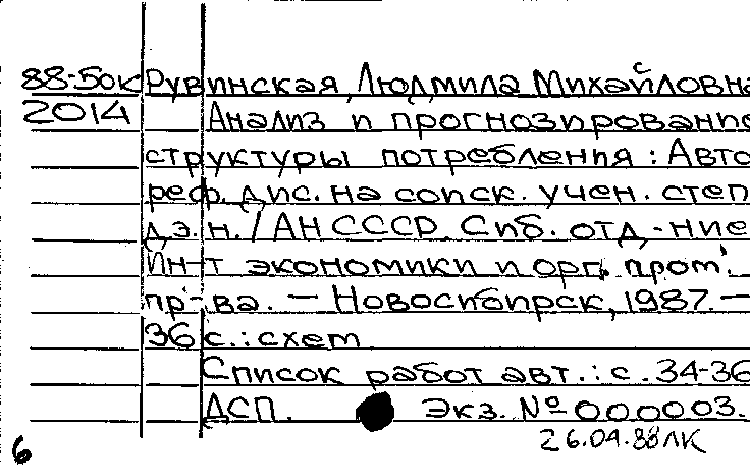 88-50к Рувинская, Людмила Михайловна
2014 Анализ и прогнозирование
структуры потребления : Авто
реф. дис. на соиск. учен. степ
д.э.н. / АН СССР, Сиб. отд-ние
Ин-т экономики и орг. пром.
пр-ва. — Новосибирск, 1987. —
36 с. : схем
Список работ авт. : с. 34-36
ДСП. Экз. № 000003.
26.04.88 ЛК
6